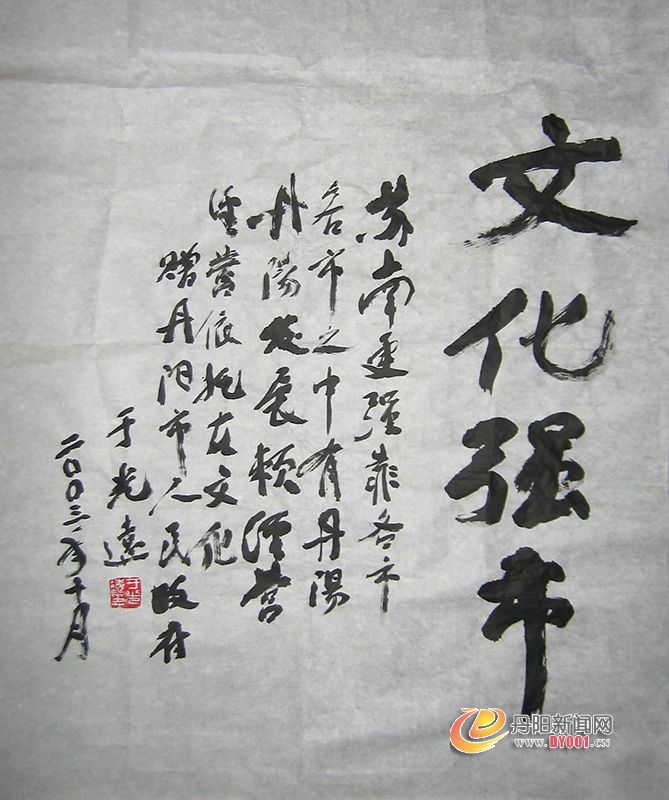 文化强市
苏南更强靠各市
各市之中有丹陽
丹陽发展赖经营
经营依托在文化
赠丹阳市人民政府
于光远
二〇〇三年十月
丹阳新闻网
www.DY001.cn